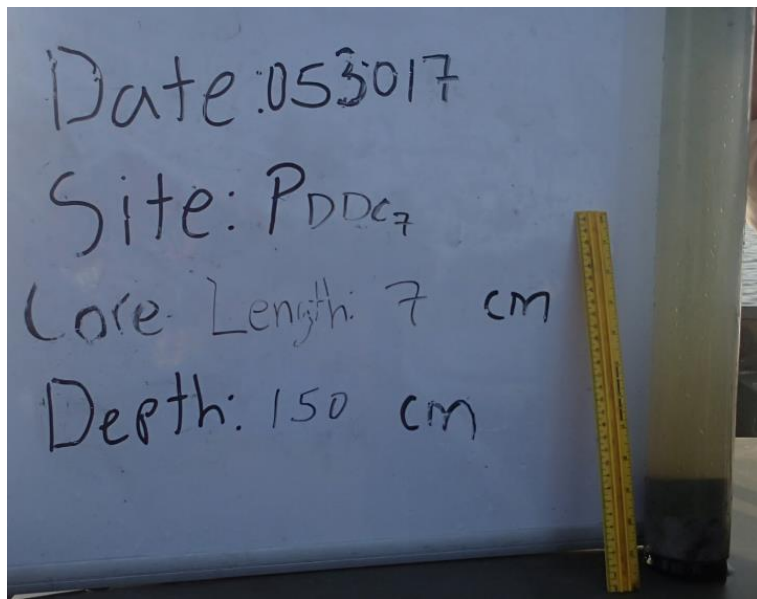 Date: 053017
Site: PDDC7
Core Length: 7 cm
Depth: 150 cm